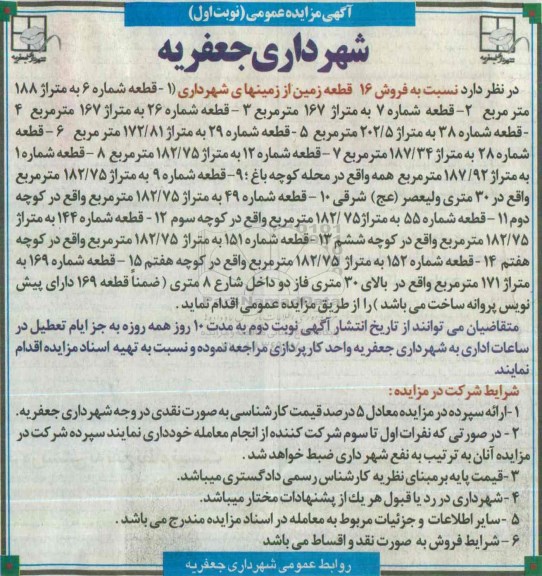 آگهی مزایده عمومی (نوبت اول)
شهرداری جعفریه
در نظر دارد نسبت به فروش ۱۶ قطعه زمین از زمینهای شهرداری (۱- قطعه شماره ۶ به متراژ ۱۸۸
متر مربع ۲- قطعه شماره ۷ به متراژ ۱۶۷ مترمربع ۳- قطعه شماره ۲۶ به متراژ ۱۶۷ مترمربع ۴
- قطعه شماره ۳۸ به متراژ ۲۰۲/۵ مترمربع ۵- قطعه شماره ۲۹ به متراژ ۱۷۲/۸۱ متر مربع ۶- قطعه
شماره ۲۸ به متراژ ۱۸۷/۳۴ مترمربع ۷- قطعه شماره ۱۲ به متراژ ۱۸۲/۷۵ مترمربع ۸- قطعه شماره ۱
به متراژ ۱۸۷/۹۲ مترمربع همه واقع در محله کوچه باغ ؛ ۹- قطعه شماره ۹ به متراژ ۱۸۲/۷۵ مترمربع
واقع در ۳۰ متری ولیعصر (عج) شرقی ۱۰- قطعه شماره ۴۹ به متراژ ۱۸۲/۷۵ مترمربع واقع در کوچه
دوم ۱۱- قطعه شماره ۵۵ به متراژ ۱۸۲/۷۵ مترمربع واقع در کوچه سوم ۱۲- قطعه شماره ۱۴۴ به متراژ
۱۸۲/۷۵ مترمربع واقع در کوچه ششم ۱۳- قطعه شماره ۱۵۱ به متراژ ۱۸۲/۷۵ مترمربع واقع در کوچه
هفتم ۱۴- قطعه شماره ۱۵۲ به متراژ ۱۸۲/۷۵ مترمربع واقع در کوچه هفتم ۱۵- قطعه شماره ۱۶۹ به
متراژ ۱۷۱ مترمربع واقع در بالای ۳۰ متری فاز دو داخل شارع ۸ متری (ضمناً قطعه ۱۶۹ دارای پیش
نویس پروانه ساخت می باشد) را از طریق مزایده عمومی اقدام نماید.
متقاضیان می توانند از تاریخ انتشار آگهی نوبت دوم به مدت ۱۰ روز همه روزه به جز ایام تعطیل در
ساعات اداری به شهرداری جعفریه واحد کارپردازی مراجعه نموده و نسبت به تهیه اسناد مزایده اقدام
نمایند.
شرایط شرکت در مزایده :
۱- ارائه سپرده در مزایده معادل ۵ درصد قیمت کارشناسی به صورت نقدی در وجه شهرداری جعفریه.
۲- در صورتی که نفرات اول تا سوم شرکت کننده از انجام معامله خودداری نمایند سپرده شرکت در
مزایده آنان به ترتیب به نفع شهرداری ضبط خواهد شد.
۳- قیمت پایه بر مبنای نظریه کارشناس رسمی دادگستری میباشد.
۴- شهرداری در رد یا قبول هر یك از پشنهادات مختار میباشد.
۵- سایر اطلاعات و جزئیات مربوط به معامله در اسناد مزایده مندرج می باشد.
۶- شرایط فروش به صورت نقد و اقساط می باشد
روابط عمومی شهرداری جعفریه